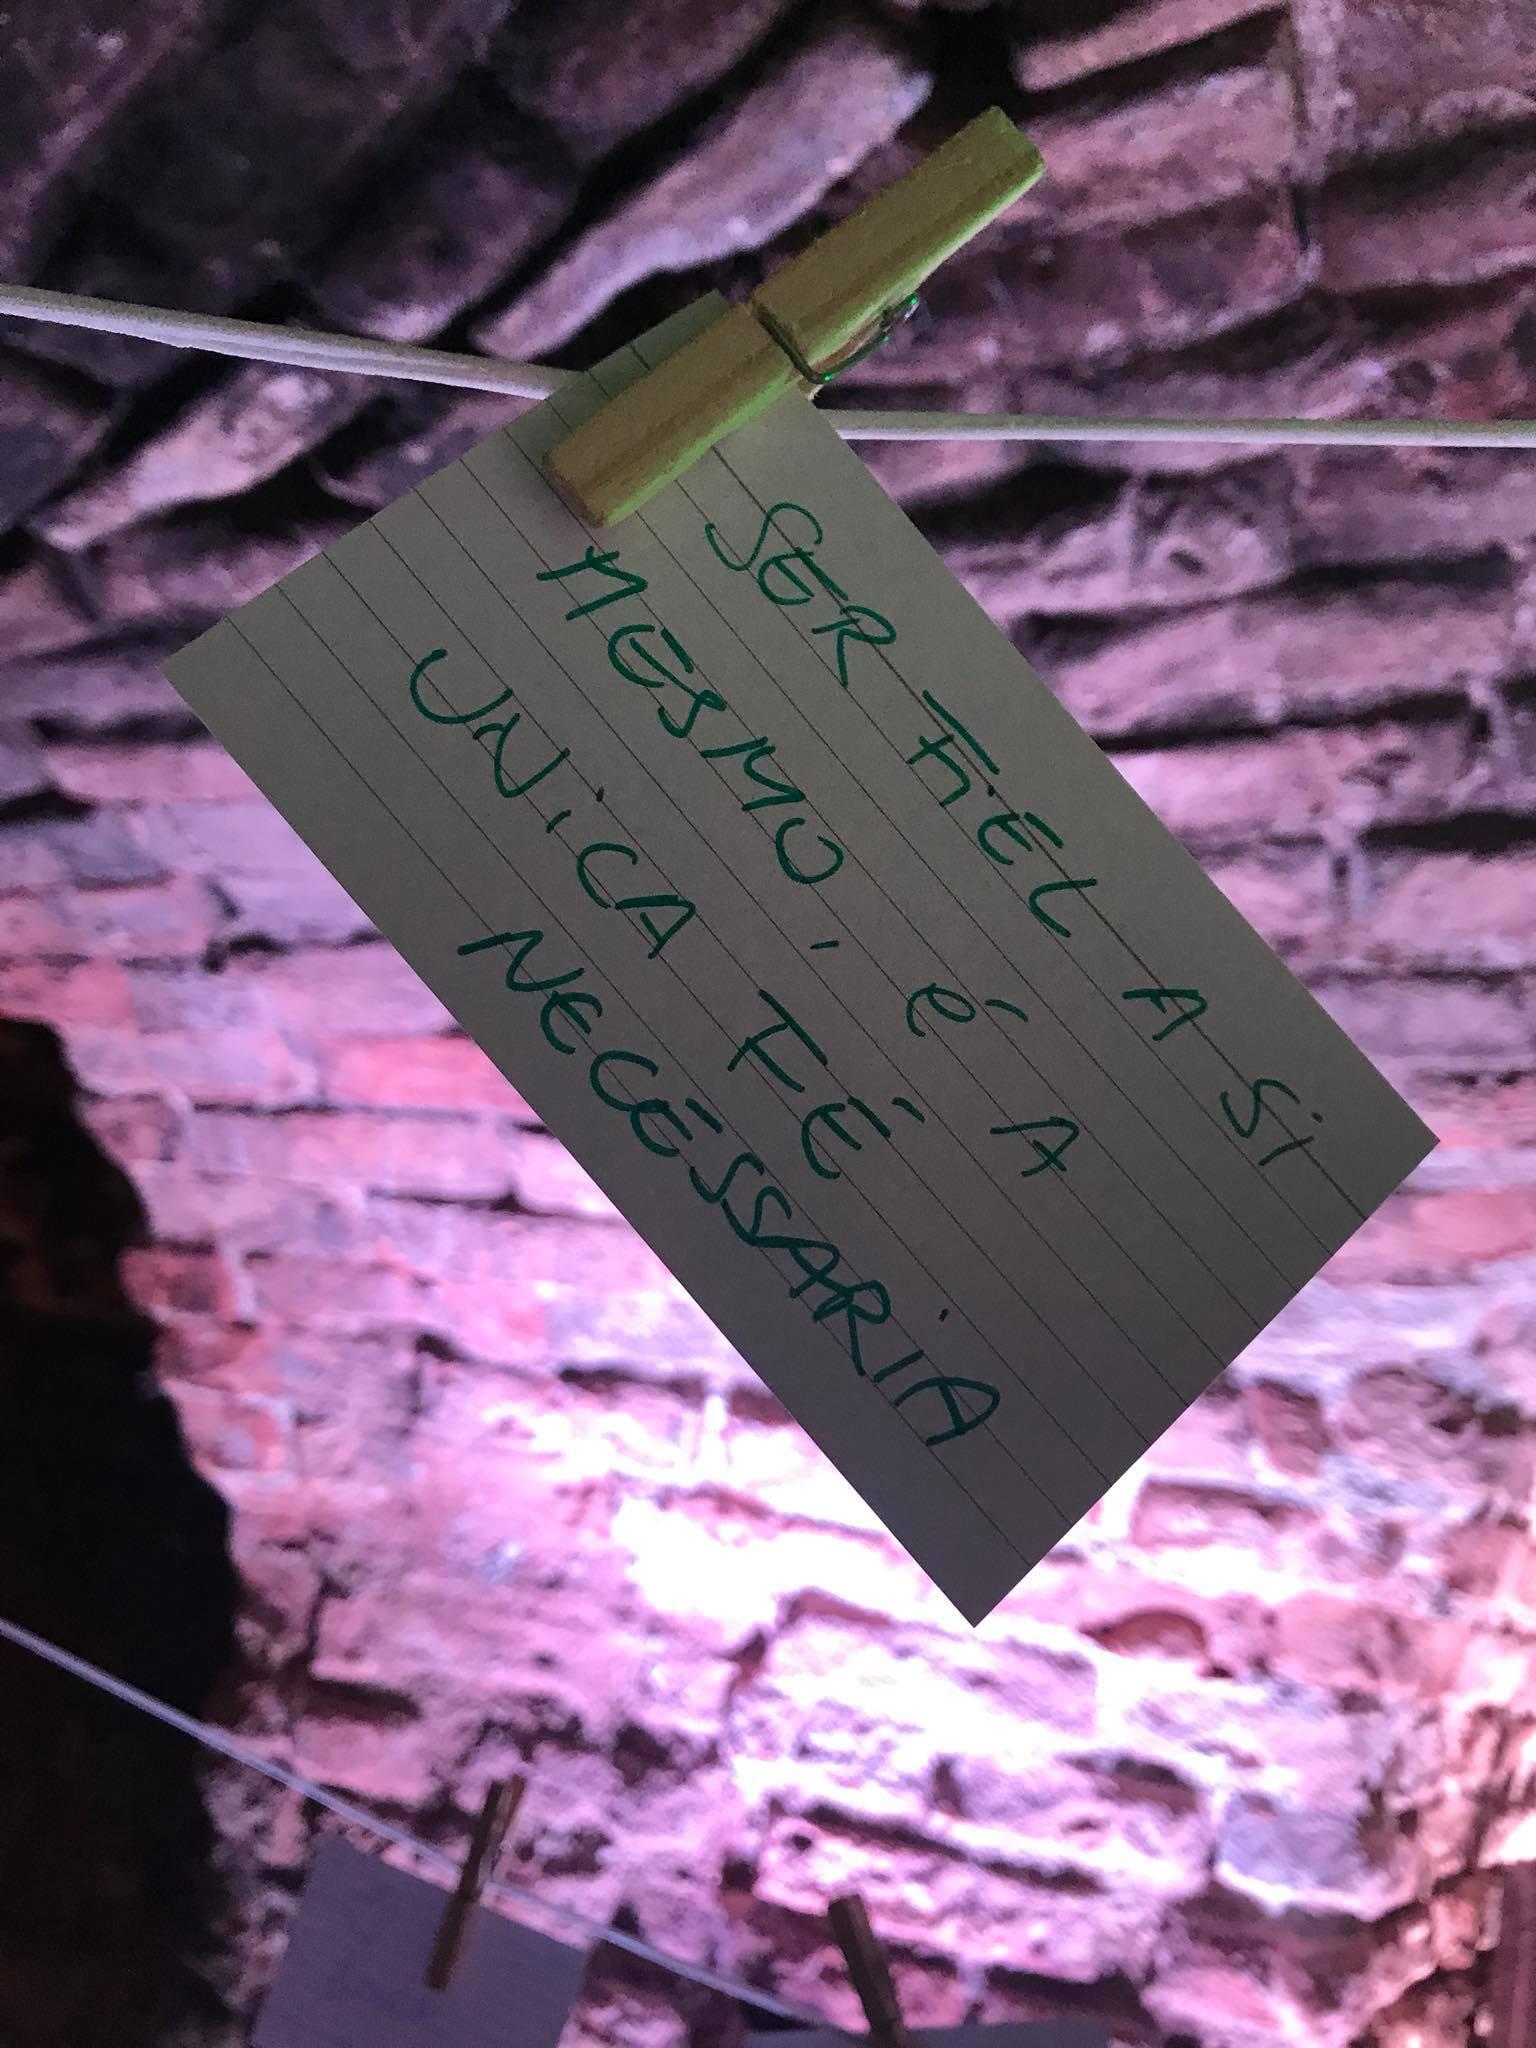 SER FIEL A Si
MESMO, É A
UNiCA FÉ
NECÉSSARiA